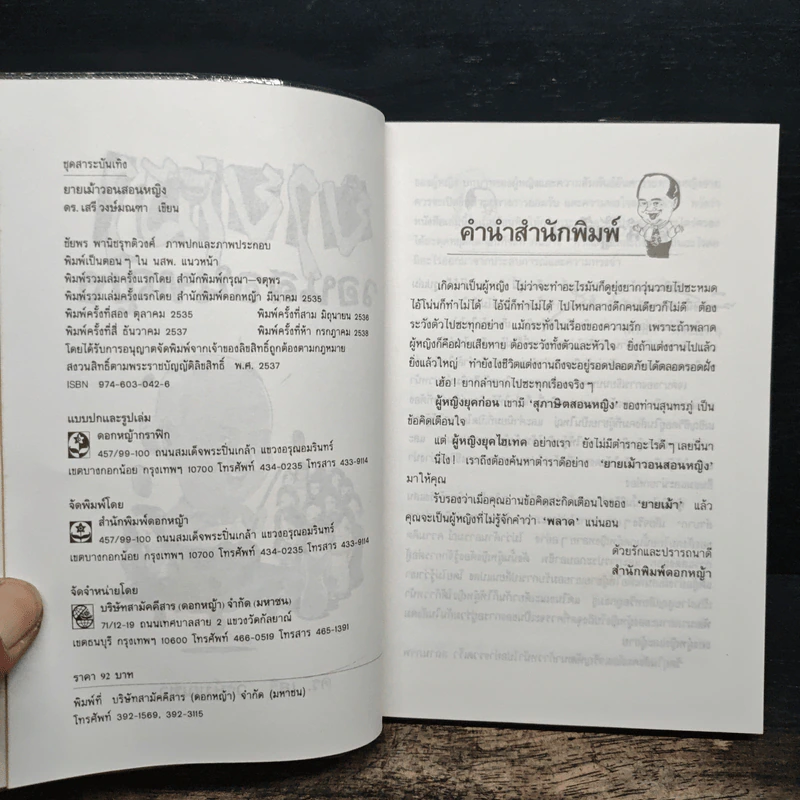 ชุดสาระบันเทิง
ยายเม้าวอนสอนหญิง
ดร. เสรี วงษ์มณฑา เขียน
ชัยพร พานิชรุทติวงศ์ ภาพปกและภาพประกอบ
พิมพ์เป็นตอนๆ ใน นสพ. แนวหน้า
พิมพ์รวมเล่มครั้งแรกโดย สำนักพิมพ์กรุณา-จตุพร
พิมพ์รวมเล่มครั้งแรกโดย สำนักพิมพ์ดอกหญ้า มีนาคม 2535
พิมพ์ครั้งที่สอง ตุลาคม 2535 พิมพ์ครั้งที่สาม มิถุนายน 2536
พิมพ์ครั้งที่สี่ ธันวาคม 2537 พิมพ์ครั้งที่ห้า กรกฎาคม 2538
โดยได้รับการอนุญาตจัดพิมพ์จากเจ้าของลิขสิทธิ์ถูกต้องตามกฎหมาย
สงวนลิขสิทธิ์ตามพระราชบัญญัติลิขสิทธิ์ พ.ศ. 2537
ISBN 974-603-042-6
แบบปกและรูปเล่ม
ดอกหญ้ากราฟิก
457/99-100 ถนนสมเด็จพระปิ่นเกล้า แขวงอรุณอมรินทร์
เขตบางกอกน้อย กรุงเทพฯ 10700 โทรศัพท์ 434-0235 โทรสาร 433-9114
จัดพิมพ์โดย
สำนักพิมพ์ดอกหญ้า
457/99-100 ถนนสมเด็จพระปิ่นเกล้า แขวงอรุณอมรินทร์
เขตบางกอกน้อย กรุงเทพฯ 10700 โทรศัพท์ 434-0235 โทรสาร 433-9114
จัดจำหน่ายโดย
บริษัทสามัคคีสาร (ดอกหญ้า) จำกัด (มหาชน)
71/12-19 ถนนเทศบาลสาย 2 แขวงวัดกัลยาณ์
เขตธนบุรี กรุงเทพฯ 10600 โทรศัพท์ 466-0519 โทรสาร 465-1391
ราคา 92 บาท
พิมพ์ที่ บริษัทสามัคคีสาร (ดอกหญ้า) จำกัด (มหาชน)
โทรศัพท์ 392-1569, 392-3115
คำนำสำนักพิมพ์
เกิดมาเป็นผู้หญิง ไม่ว่าจะทำอะไรมันก็ดูยุ่งยากวุ่นวายไปซะหมด
ไอ้โน่นก็ทำไม่ได้ ไอ้นี่ก็ทำไม่ได้ ไปไหนกลางดึกคนเดียวก็ไม่ดี ต้อง
ระวังตัวไปซะทุกอย่าง แม้กระทั่งในเรื่องของความรัก เพราะถ้าพลาด
ผู้หญิงก็คือฝ่ายเสียหาย ต้องระวังทั้งตัวและหัวใจ ยิ่งถ้าแต่งงานไปแล้ว
ยิ่งแล้วใหญ่ ทำยังไงชีวิตแต่งงานถึงจะอยู่รอดปลอดภัยได้ตลอดรอดฝั่ง
เฮ้อ! ยากลำบากไปซะทุกเรื่องจริงๆ
ผู้หญิงยุคก่อน เขามี 'สุภาษิตสอนหญิง' ของท่านสุนทรภู่ เป็น
ข้อคิดเตือนใจ
แต่ ผู้หญิงยุคไฮเทค อย่างเรา ยังไม่มีตำราอะไรดีๆ เลยนี่นา
นี่ไง! เราถึงต้องค้นหาตำราดีอย่าง 'ยายเม้าวอนสอนหญิง'
มาให้คุณ
รับรองว่าเมื่อคุณอ่านข้อคิดสะกิดเตือนใจของ 'ยายเม้า' แล้ว
คุณจะเป็นผู้หญิงที่ไม่รู้จักคำว่า 'พลาด' แน่นอน
ด้วยรักและปรารถนาดี
สำนักพิมพ์ดอกหญ้า